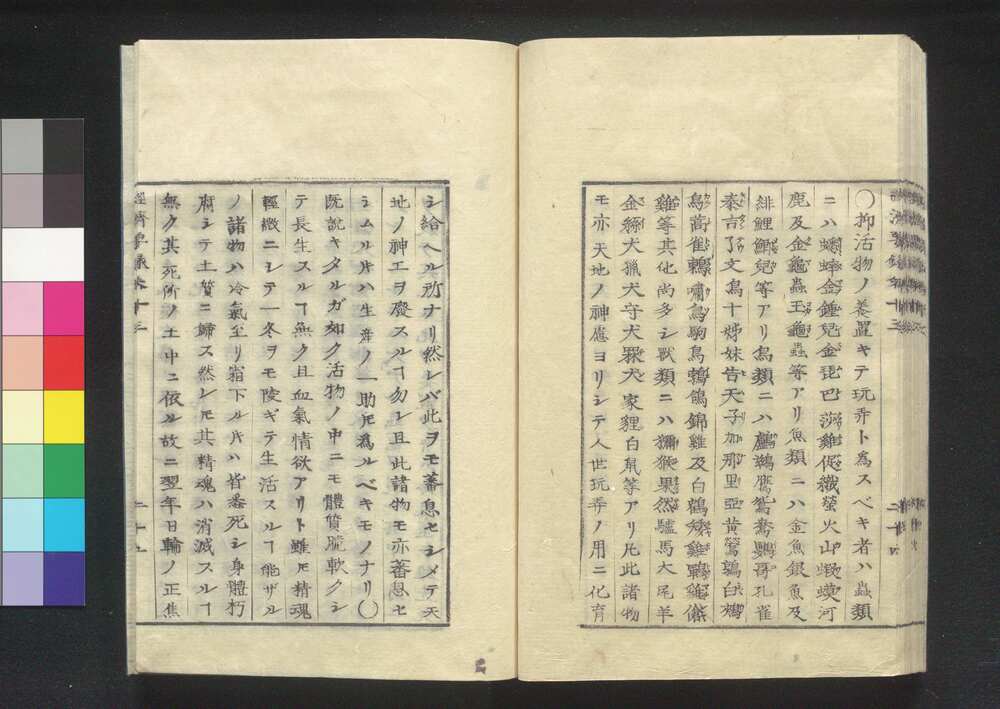 〇抑活物ノ養置キテ玩弄ト爲スベキ者ハ蟲類
ニハ蟋蟀金鍾兒金琵巴莎雞促織螢火山蝦蟆河
鹿及金龜蟲玉龜蟲等アリ魚類ニハ金魚銀魚及
緋鯉鯽兒等アリ鳥類ニハ鸕鷀鷹鴛鴦鸚哥孔雀
秦吉了文鳥十姊妹告天子加那里亞黄鶯鶉白鷴
鳥蒿雀鶫嘯鳥駒鳥鶉鴿錦雞及白鷴矮雞鸐雞
雞等其他尚多シ獸類ニハ獼猴果然驢馬大尾羊
金絲犬獵犬守犬羆犬家狸白鼠等アリ凡此諸物
モ亦天地ノ神應ヨリシテ人世玩弄ノ用ニ化育
シ給ヘル所ナリ然レバ此ヲモ蕃息セシメテ天
地ノ神工ヲ廢スルヿ勿レ且此諸物モ亦蕃息セ
シムル片ハ生產ノ一助𪜈爲ルベキモノナリ〇
既說キタルガ如ク活物ノ中ニモ體質脆軟クシ
テ長生スルヿ無ク且血氣情欲アリト雖𪜈精魂
輕微ニシテ一冬ヲモ陵ギテ生活スルヿ能ザル
ノ諸物ハ冷氣至リ霜下ル片ハ皆悉死シ身體朽
腐シテ土質ニ歸ス然レ𪜈其精魂ハ消滅スルヿ
無ク其死所ノ土中ニ依ル故ニ翌年日輪ノ正焦